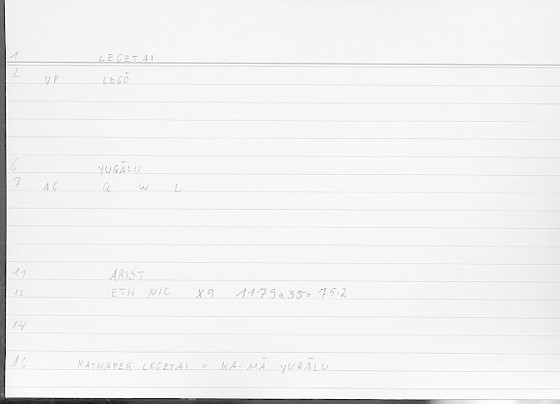 1 LEGETAI
2 VP LEGŌ
6 YUQĀLU
7 AG Q W L
11 ARIST
12 ETH NIC X9 1179a35-75.2
14
16 KATHAPER LEGETAI - KA-MĀ YUQĀLU